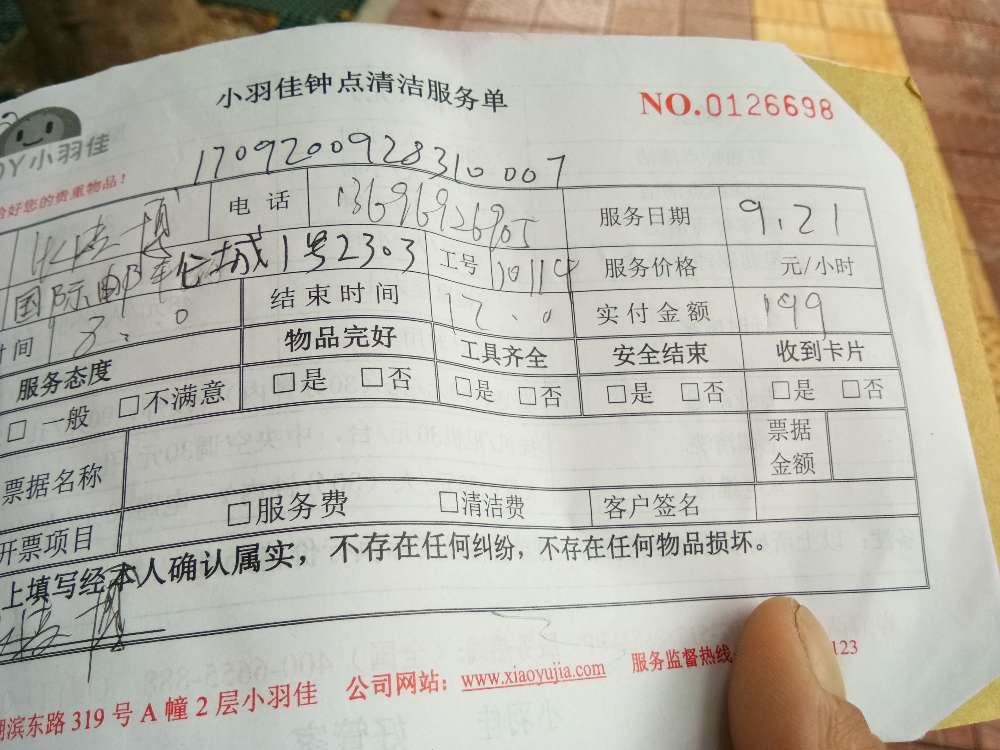 小羽佳钟点清洁服务单
NO.0126698
小羽佳
好您的贵重物品！
1709200928310007
电 话 13696926905 服务日期 9.21
国际邮轮城1号2303 工号 10114 服务价格 元/小时
时间 8:0 结束时间 12:0 实付金额 199
服务态度 物品完好 工具齐全 安全结束 收到卡片
□ 一般 □不满意 □是 □否 □是 □否 □是 □否 □是 □否
票据名称 票据金额
开票项目 □服务费 □清洁费 客户签名
上填写经本人确认属实，不存在任何纠纷，不存在任何物品损坏。
湖滨东路 319 号 A 幢 2 层小羽佳 公司网站：www.xiaoyujia.com 服务监督热线 123